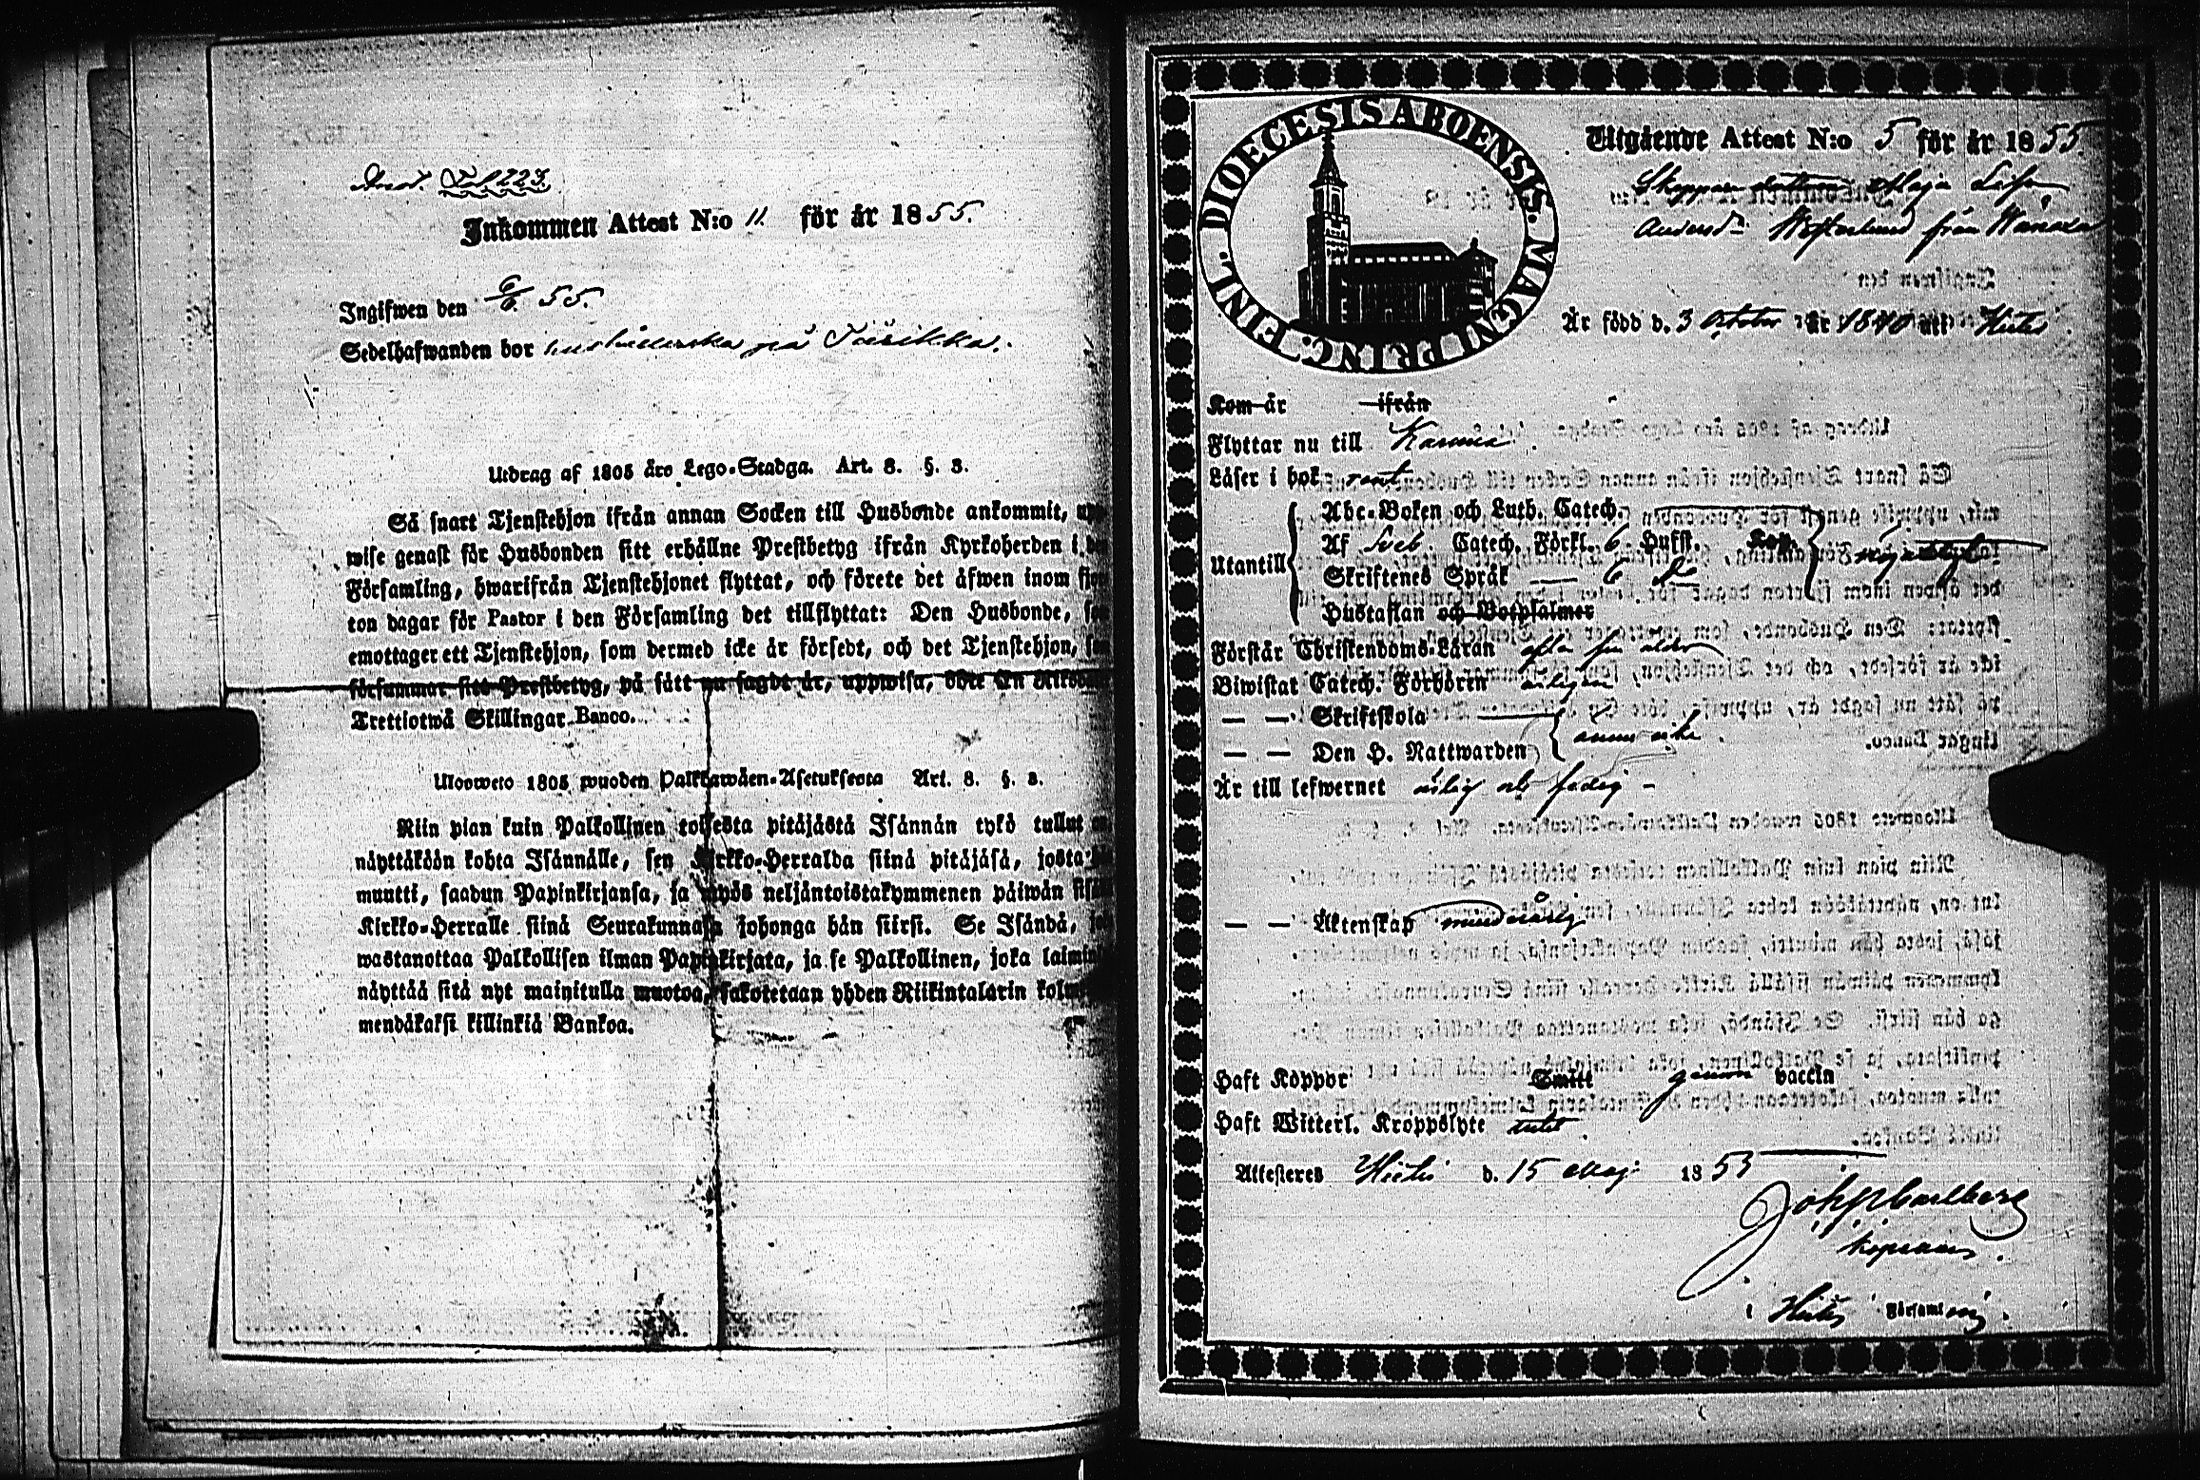 Anot. Fol 223.
Inkommen Attest N:o 11. för år 1855.
Ingifwen den 6/6. 55.
Sedelhafwanden bor hushållerska på Tärikka.
Utdrag af 1805 års Lego-Stadga. Art. 8. §. 3.
Så snart Tjenstehjon ifrån annan Socken till Husbonde ankommit,
wise genast för Husbonden sitt erhållne Prestbetyg ifrån Kyrkoherden i
Församling, hwarifrån Tjenstehjonet flyttat, och förete det äfwen inom
ton dagar för Pastor i den Församling det tillflyttat: Den Husbonde,
emottager ett Tjenstehjon, som dermed icke är försedt, och det Tjenstehjon,
försummar sitt Prestbetyg, på sätt nu sagdt är, uppwisa, böte En
Trettiotwå Skillingar Banco.
Ulosweto 1805 wuoden Palkkawäen-Asetuksesta Art. 8. §. 3.
Niin pian kuin Palkollinen toisesta pitäjästä Isännän tykö tullut
näyttäköön kohta Isännälle, sen Kirkko-Herralda siinä pitäjäsä, josta
muutti, saadun Papinkirjansa, ja myös neljäntoistakymmenen päiwän
Kirkko-Herralle siinä Seurakunnasa johonga hän siirsi. Se Isändä,
wastanottaa Palkollisen ilman Papinkirjata, ja se Palkollinen, joka
näyttää sitä nyt mainitulla muotoa, sakotetaan yhden Riikintalarin
mendäkaksi killinkiä Bankoa.
FINL. DIOECESIS ABOENSIS. MAGNI PRINC.
Utgående Attest N:o 5 för år 1855.
Skepparedottren Maja Lisa
Andersd:r Westerlund från Wänoxa
Är född d. 3 October år 1840 uti Hitis
Kom år ifrån
Flyttar nu till Karuna
Läser i bok rent
Utantill
Abc-Boken och Luth. Catech.
Af Sveb. Catech. Förkl. 6 Hufst. Kop.
Skriftenes Språk — 6 D:o
nöjaktigt
Hustaflan och Botpsalmer
Förstår Christendoms-Läran efter sin ålder
Biwistat Catech. Förhören årligen
— — Skriftskola
— — Den H. Nattwarden
ännu icke.
Är till lefwernet ärlig och fredig –
— — Äktenskap minderårig
Haft Koppor Smitt genom vaccin
Haft Witterl. Kroppslyte intet.
Attesteres Hitis d. 15 Maj 1855
Joh. Carlberg
kapellan.
i Hitis Församling.